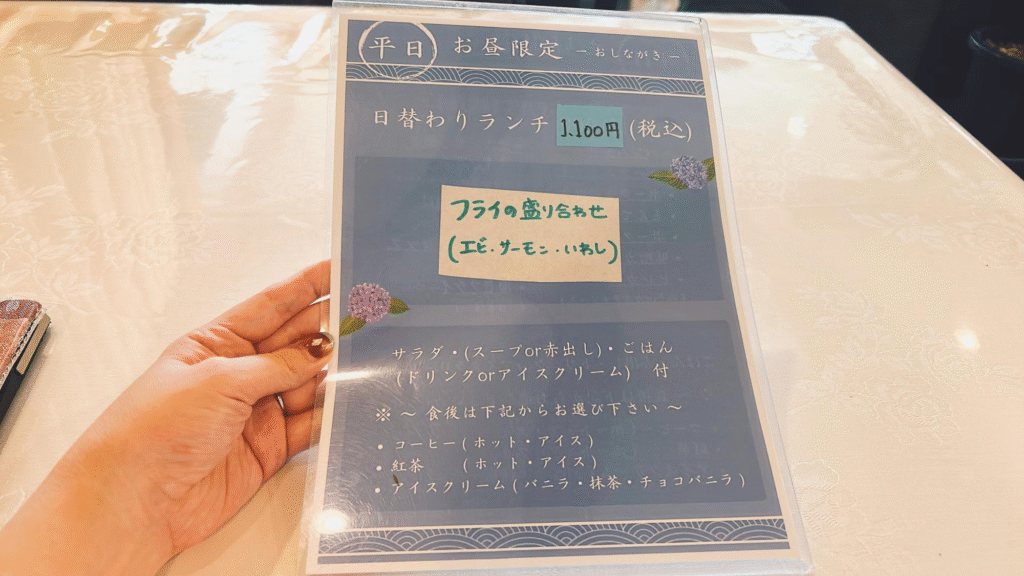 平日 お昼限定 ーおしながきー
日替わりランチ 1,100円 (税込)
フライの盛り合わせ
(エビ・サーモン・いわし)
サラダ・(スープor赤出し)・ごはん
(ドリンクorアイスクリーム) 付
※ ～ 食後は下記からお選び下さい ～
• コーヒー ( ホット・アイス )
• 紅茶 ( ホット・アイス )
• アイスクリーム ( バニラ・抹茶・チョコバニラ )